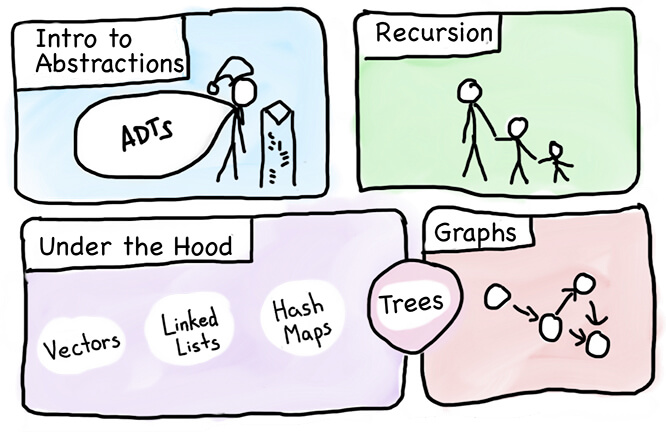 Intro to
Abstractions
ADTs
Recursion
Under the Hood
Vectors
Linked
Lists
Hash
Maps
Trees
Graphs